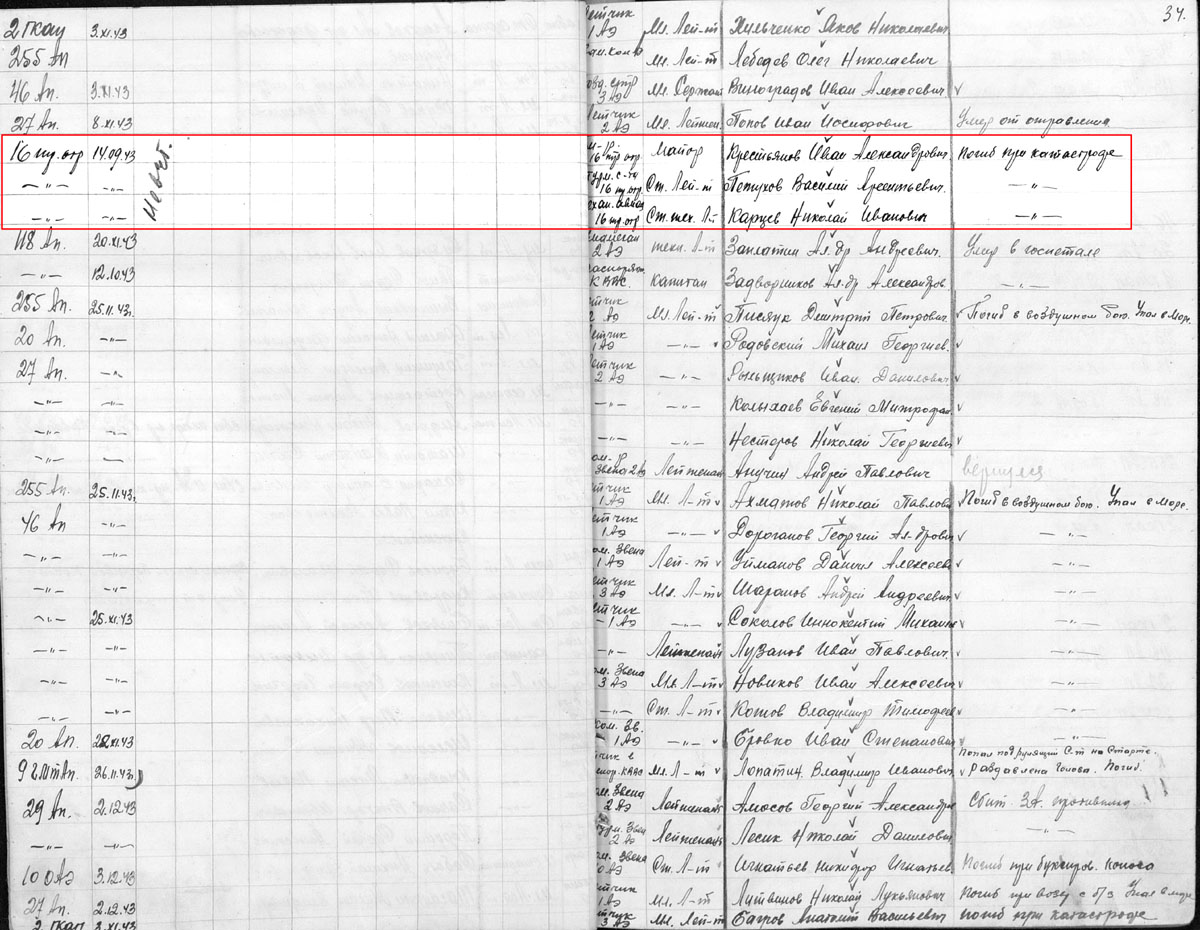 34.
2 ГКАУ 3.XI.43 Летчик 1 АЭ Мл. Лей-т Хильченко Яков Николаевич
255 Ап Мл. Лей-т Лебедев Олег Николаевич
46 Ап. 3.XI.43 3 АЭ Мл. Сержан Виноградов Иван Алексеевич
27 Ап. 8.XI.43 Летчик 2 АЭ Мл. Лейтен. Попов Иван Иосифович Умер от отравления
16 тр. отр 14.09.43 16 тр отр Майор Крестьянов Иван Александрович Погиб при катастрофе
—"— —"— 16 тр. отр. Ст. Лей-т Петухов Василий Арсентьевич —"—
—"— —"— 16 тр. отр Ст. тех. Л- Карцев Николай Иванович —"—
118 Ап. 20.XI.43 2 АЭ техн. Л-т Заплатин Ал-др Андреевич. Умер в госпетале
—"— 12.10.43 Капитан Задворников Ал-др Александров —"—
255 Ап. 25.11.43г. Летчик 2 АЭ Мл. Лей-т Писяук Дмитрий Петрович Погиб в воздушном бою. Упал в Море.
20 Ап. —"— Летчик 1 АЭ —"— Родовский Михаил Георгиев.
27 Ап. —"— Летчик 2 АЭ —"— Рыльщиков Иван Данилович
—"— —"— —"— —"— Колыхаев Евгений Митрофан
—"— —"— —"— —"— Несторов Николай Георгиевич
—"— —"— Ком. Звена 2 АЭ Лейтенант Анучин Андрей Павлович вернулся
255 Ап. 25.11.43г. Летчик 1 АЭ Мл. Л-т Ахматов Николай Павлович Погиб в воздушном бою. Упал в Море.
46 Ап —"— Летчик 1 АЭ —"— Дороганов Георгий Ал-дрович —"—
—"— —"— Ком. Звена 1 АЭ Лей-т Уйманов Даниил Алексеев —"—
—"— —"— Летчик 3 АЭ Мл. Л-т Шарапов Андрей Андреевич —"—
—"— 25.XI.43 Летчик 1 АЭ —"— Соколов Иннокентий Михаил —"—
—"— —"— —"— Лейтенант Лузанов Иван Павлович —"—
—"— —"— Ком. Звена 3 АЭ Мл. Л-т Новиков Иван Алексеевич —"—
—"— —"— —"— Ст. Л-т Котов Владимир Тимофеев —"—
20 Ап. 22.XI.43 Ком. Зв. 1 АЭ —"— Бровко Иван Степанович —"—
9 26.11.43г. Мл. Л-т Лопатин Владимир Иванович Попал под рулящий С-т на Старте. Раздавлена Голова. Погиб.
29 Ап. 2.12.43 Ком. Звена 2 АЭ Лейтенант Амосов Георгий Александров Сбит ЗА. противника
—"— —"— Звен 2 АЭ Лейтенант Лесик Николай Данилович —"—
10 ОАЭ 3.12.43 Ком. Звена Ст. Л-т Игнатьев Никифор Игнатьев Погиб при буксиров. конуса
27 Ап. 2.12.43 Летчик 1 АЭ Мл. Л-т Литвинов Николай Лукьянович Погиб при возвр с б/з Упал в море
2 ГКАП 3.XI.43 Летчик 3 АЭ Мл. Лей-т Багров Анатолий Васильевич Погиб при катастрофе